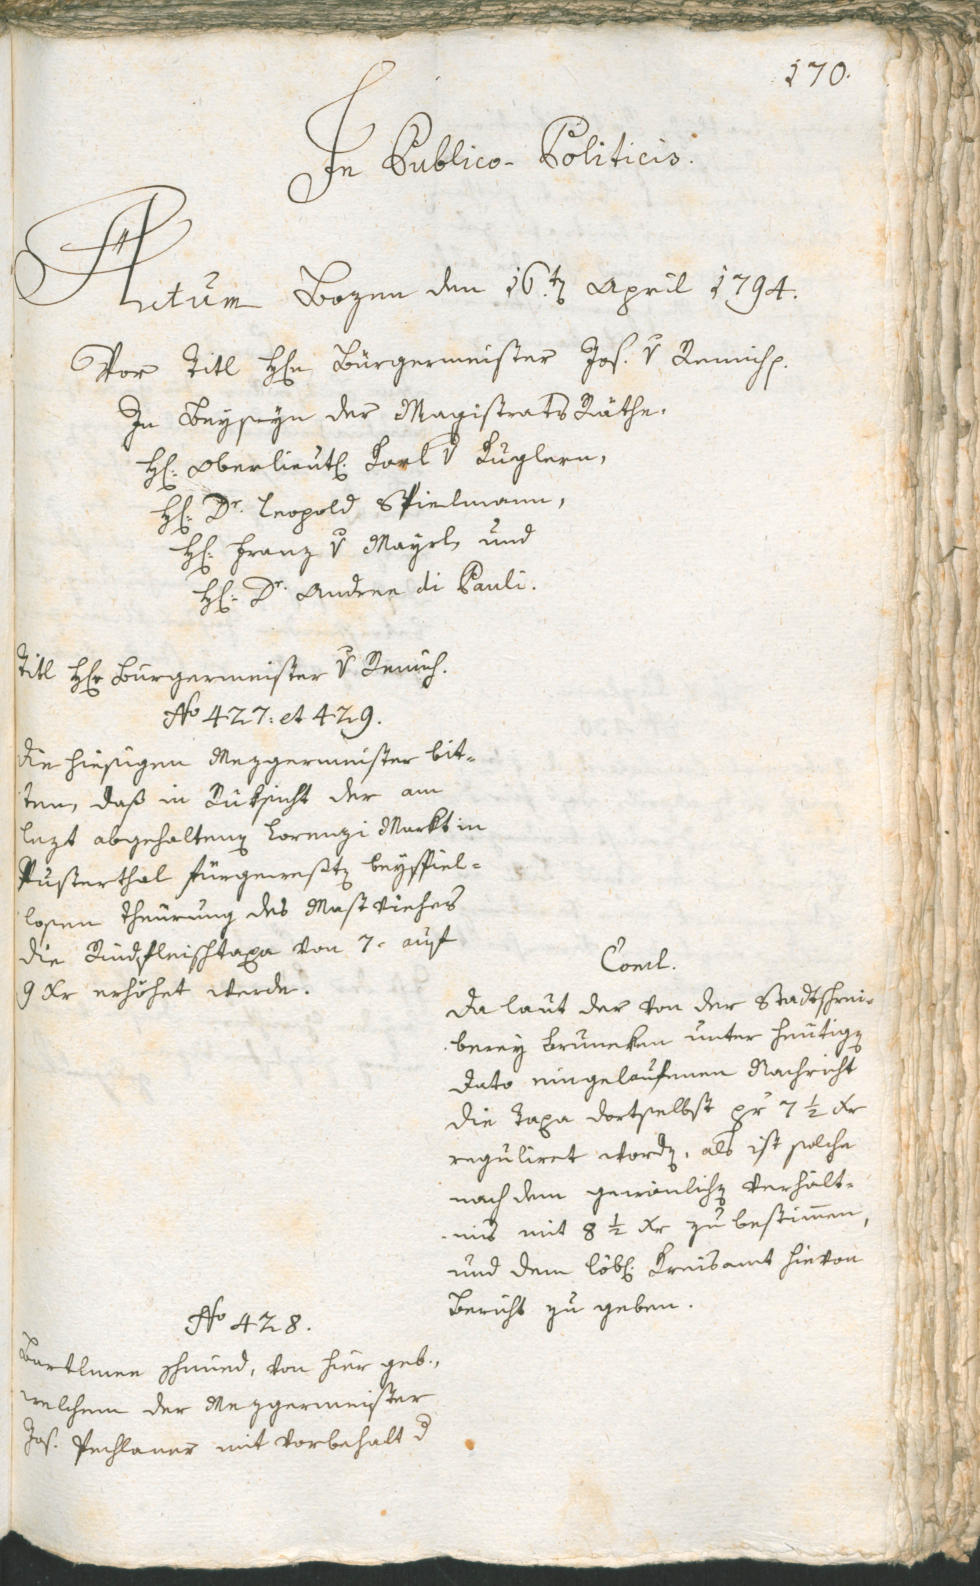 170.
In Publico-Politicis.
Actum Bozen den 16.t April 1794.
Vor Titl Hℓn Bürgermeister Jos. v Remich p.
In Beyseyn der MagistratsRäthe.
Hℓ: Oberlieutℓ: Karl v Kuglern,
Hℓ: Dr. Leopold Spielmann,
Hℓ: Franz v Mayrl, und
Hℓ: Dr. Andree di Pauli.
Titl Hℓr Bürgermeister v Remich.
No 427: et 429.
Die hiesigen Mezgermeister bit-
ten, daß in Rüksicht der am
lezt abgehalten Lorenzi Markt in
Pusterthal fürgewesten beyspiel-
losen Theürung des Mast Viehes
die Rindfleischtaxa von 7. auf
9 Xr erhöhet werde.
Concl.
Da laut der von der Stadtschrei-
berey Bruneken unter heutigen
Dato eingelaufenen Nachricht
die Taxa dortselbst pr 7 ½ Xr
reguliret worden, als ist solche
nach dem gewönlichen Verhält-
nis mit 8 ½ Xr zu bestimmen,
und dem löbℓ: Kreisamt hievon
Bericht zu geben.
No 428.
Bartlmee Schmied, von hier geb.,
welchem der Mezgermeister
Jos. Pechlaner mit Vorbehalt d